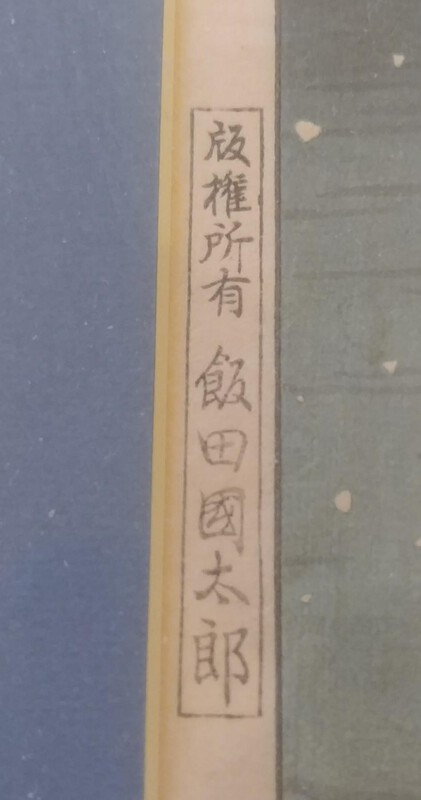 版権所有 飯田國太郎